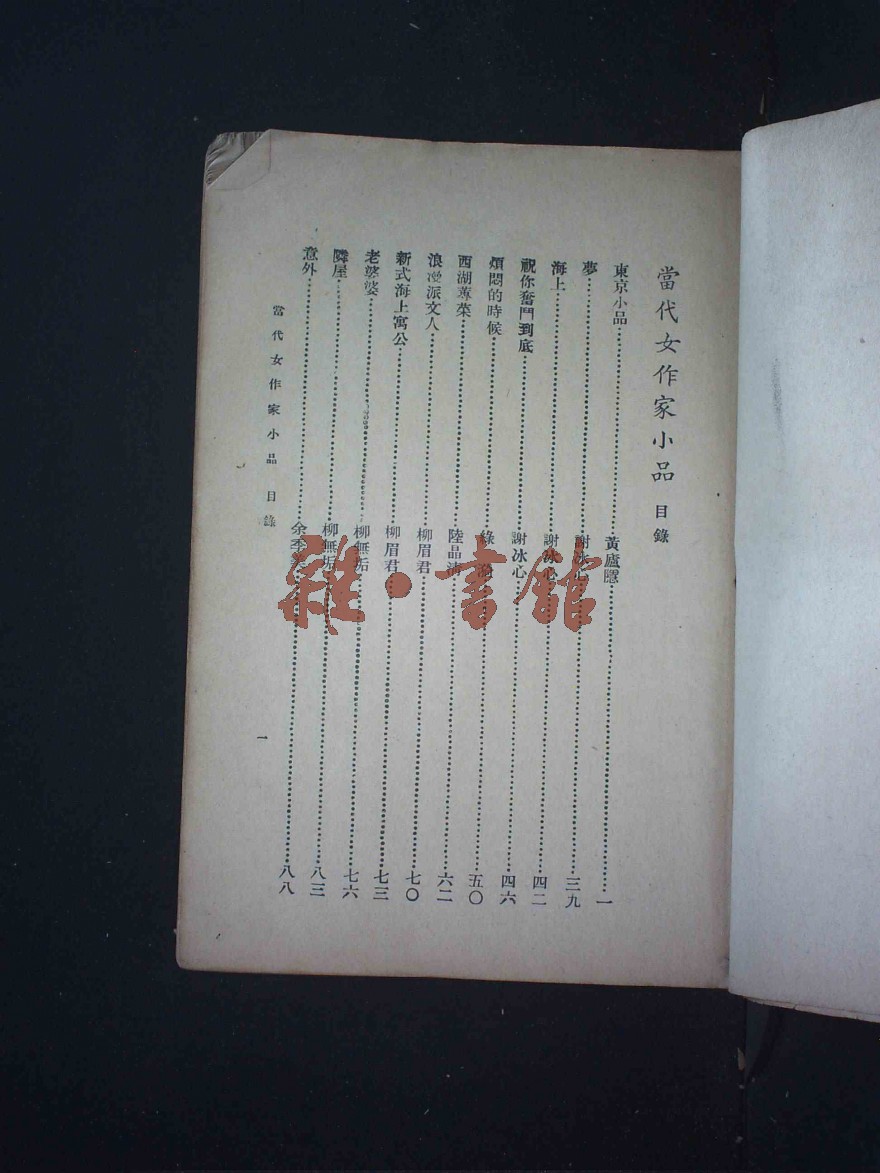 當代女作家小品 目錄
東京小品 黃廬隱 一
夢 謝冰心 三九
海上 謝冰心 四二
祝你奮鬥到底 謝冰心 四六
煩悶的時候 綠漪 五〇
西湖蓴菜 陸晶清 六二
浪漫派文人 柳眉君 七〇
新式海上寓公 柳眉君 七三
老婆婆 柳無垢 七六
隣屋 柳無垢 八三
意外 余季美 八八
當代女作家小品 目錄
一
雜·書館